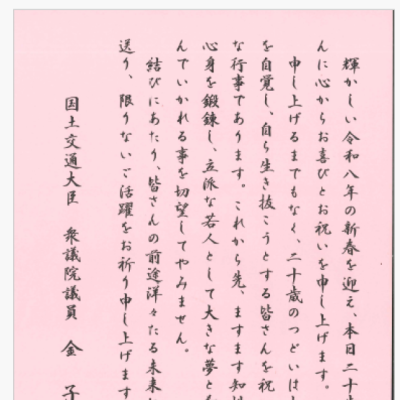 輝かしい令和八年の新春を迎え、本日二十
んに心からお喜びとお祝いを申し上げます。
申し上げるまでもなく、二十歳のつどいは
を自覚し、自ら生き抜こうとする皆さんを祝
な行事であります。これから先、ますます知
心身を鍛錬し、立派な若人として大きな夢と
んでいかれる事を切望してやみません。
結びにあたり、皆さんの前途洋々たる未来
送り、限りないご活躍をお祈り申し上げます
国土交通大臣 衆議院議員 金 子